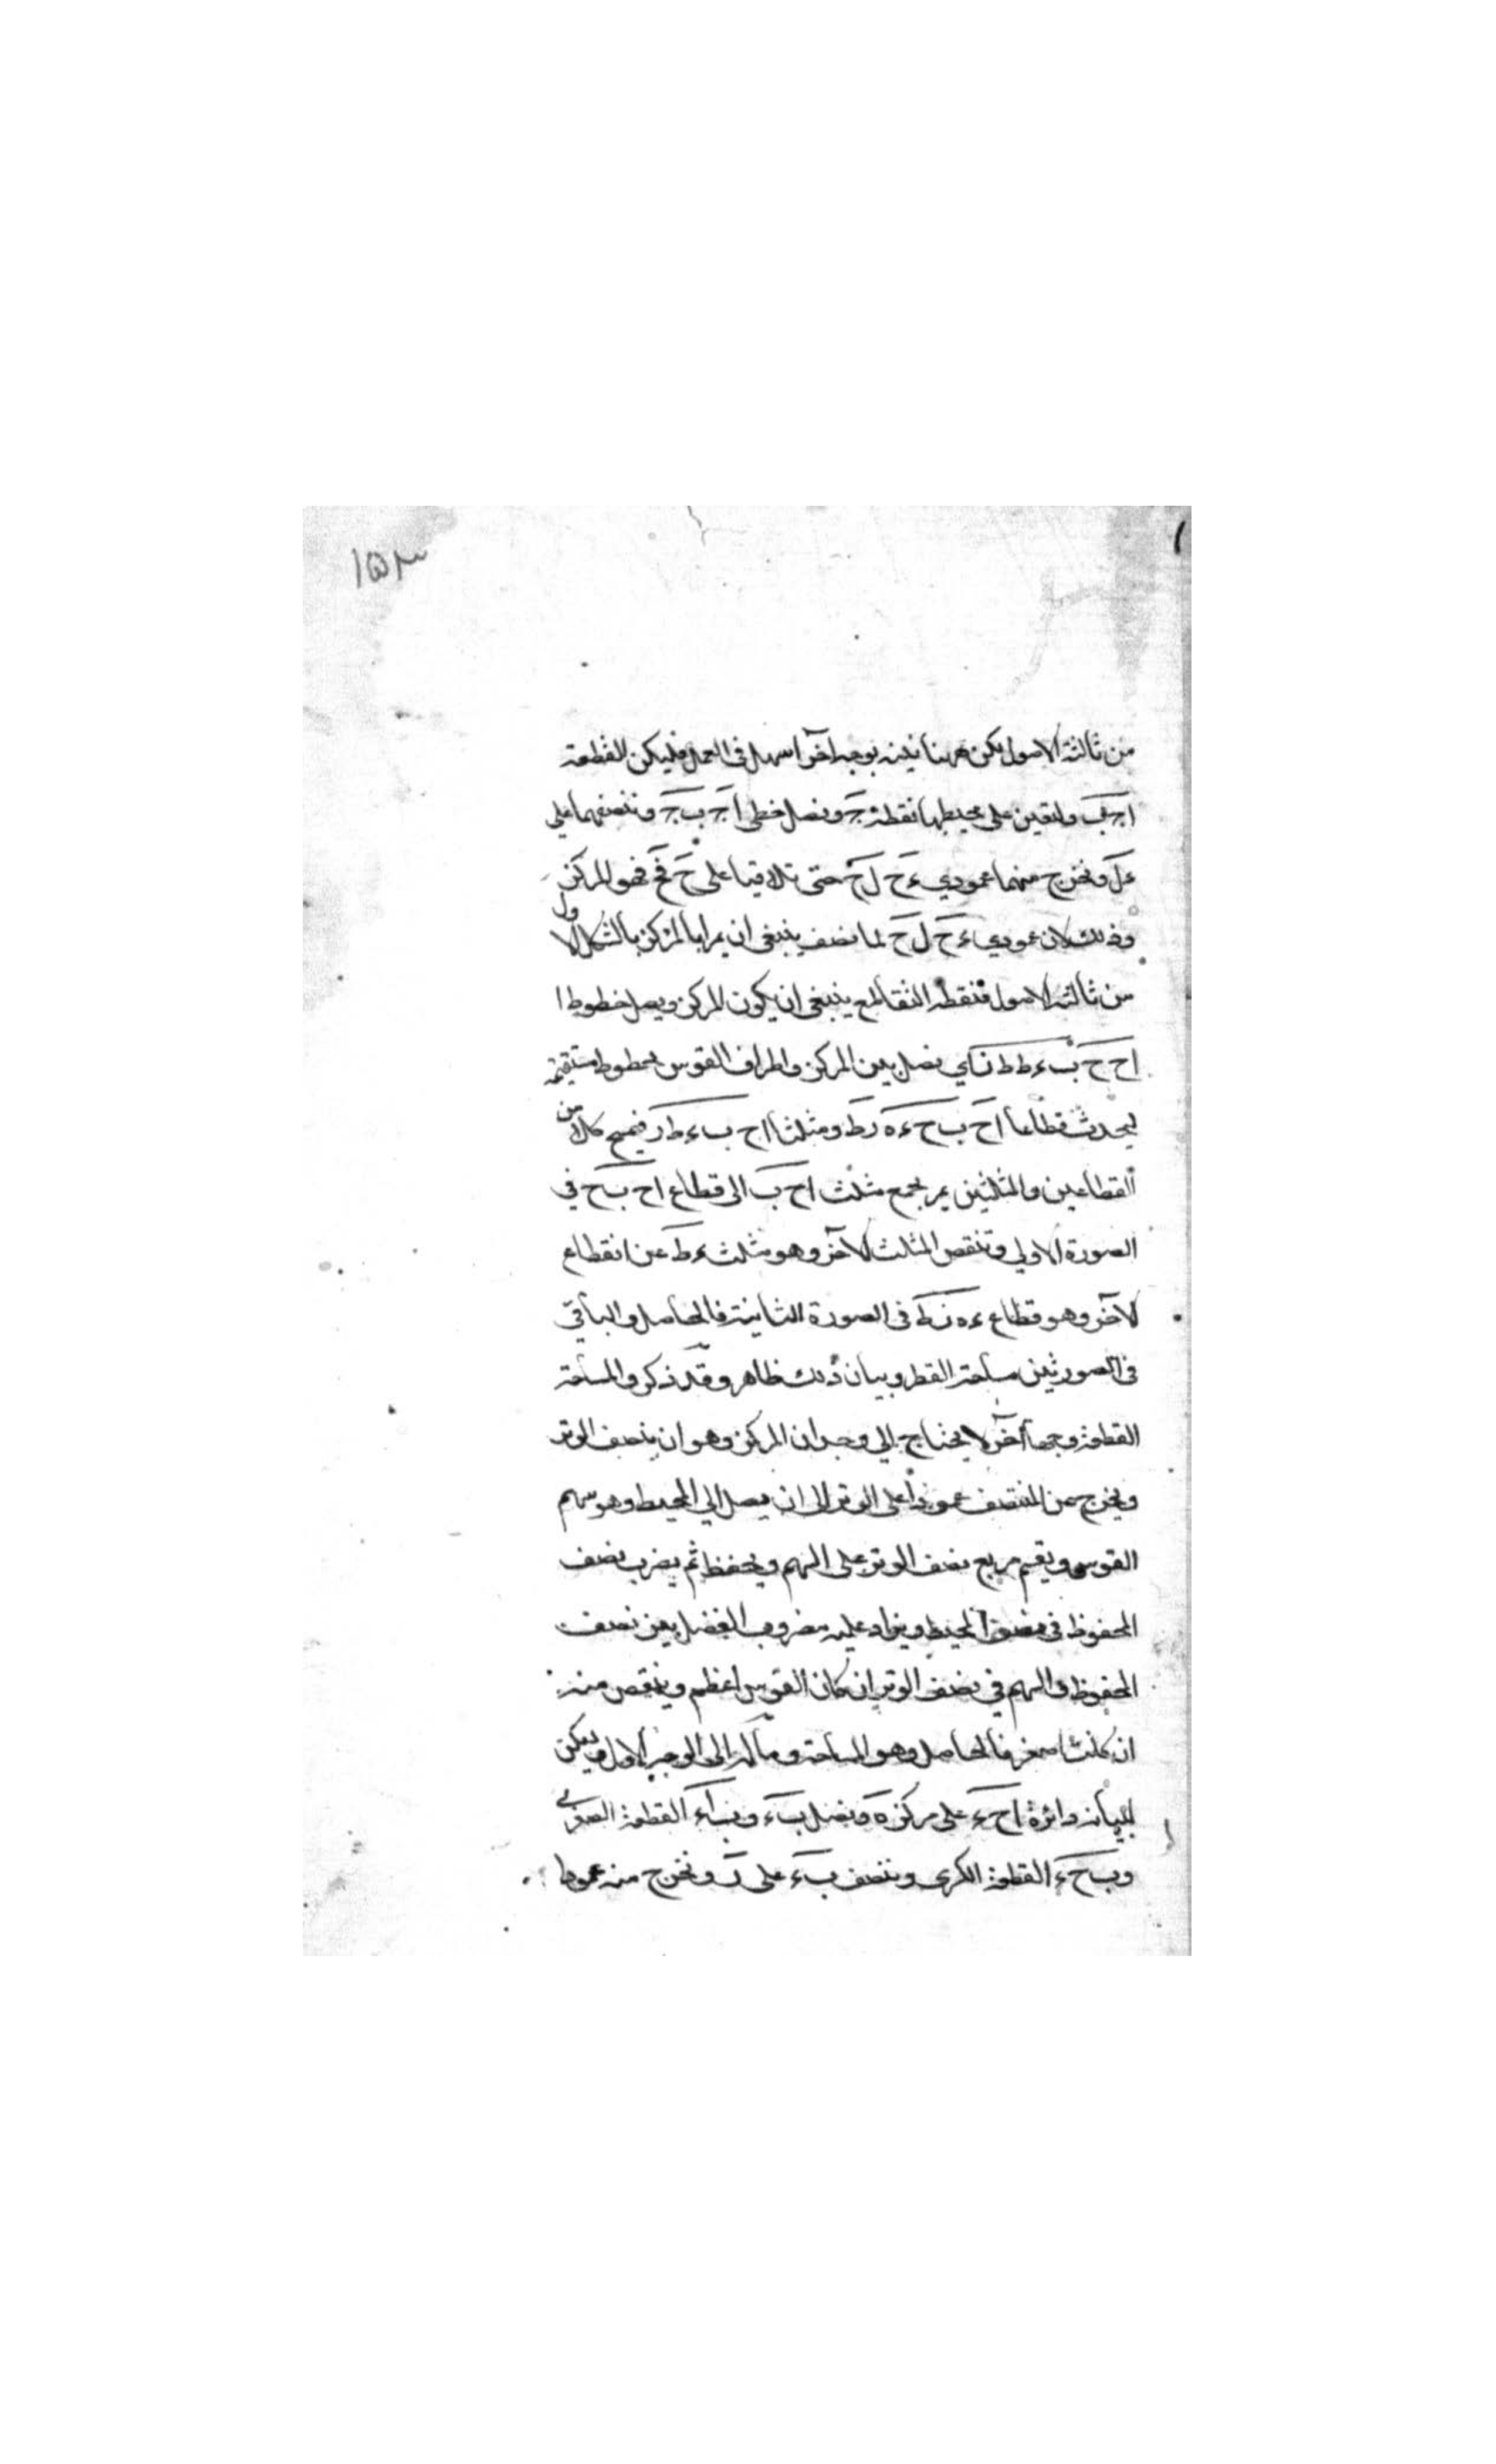 ١٥٣
من ثالثة الاصول لكن ههنا نبينه بوجه آخر اسهل فى العمل فليكن القطعة
اجب ولنعين على محيطها نقطة ج ونصل خطى اج ب ج وننصفهما على
ء ل ونخرج منهما عمودي ء ح ل ح حتى تلاقيا على ح فح فهو المركز
وذلك لان عمودي ء ح ل ح لما نصف ينبغى ان يمرا بالمركز بالشكل الاول
من ثالثة الاصول فنقطة التقاطع ينبغى ان يكون المركز ويصل خطوط ا
اح ح ب ء ط ط ز اي نصل بين المركز واطراف القوس بخطوط مستقيمة
ليحدث قطاعا اح ب ح ء ه ر ط ومثلثا اح ب ء ط ر فيمسح كلا من
القطاعين والمثلثين ثم يجمع مثلث اح ب الى قطاع اح ب ح في
الصورة الاولي وتنقص المثلث الآخر وهو مثلث ء ط عن القطاع
الآخر وهو قطاع ء ه ز ط فى الصورة الثانية فالحاصل والباقي
فى الصورتين مساحة القطر وبيان ذلك ظاهر وقد ذكر والمساحة
القطعة وجها آخر لا يحتاج الي وجدان المركز وهو ان ينصف الوتر
ويخرج من المنتصف عمودا على الوتر الى ان يصل الي المحيط وهو سهم
القوس ويقسم مربع نصف الوتر على السهم ويحفظ ثم يضرب نصف
المحفوظ فى نصف المحيط ويزاد عليه مضروب الفضل بين نصف
المحفوظ والسهم في نصف الوتر ان كان القوس اعظم وينقص منه
ان كانت اصغر فالحاصل وهو المساحة ومآله الى الوجه الاول وليكن
لبيانه دائرة اح ء على مركز ه ونصل ب ء و ب اء القطعة الصغرى
و ب ح ء القطعة الكبرى وننصف ب ء على ر ونخرج منه عمودا